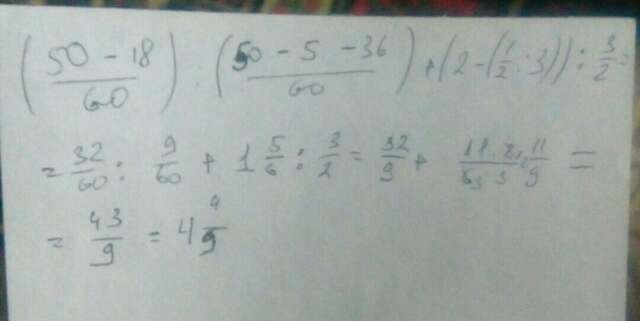 ((50 - 18)/60) : ((50 - 5 - 36)/60) + (2 - (1/2 : 3)) : 3/2 =
= 32/60 : 9/60 + 1 5/6 : 3/2 = 32/9 + 11 · 2/6 3 · 3 = 11/9 =
= 43/9 = 4 9